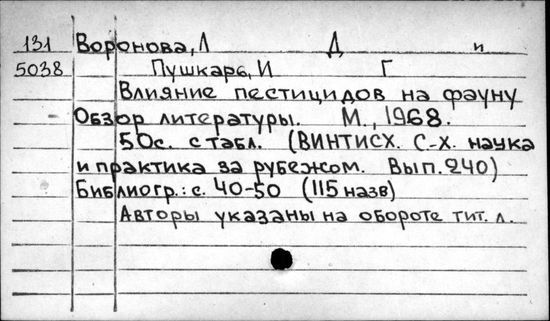 131 Воронова, Л Д и
5038 Пушкарь, И Г
Влияние пестицидов на фауну
Обзор литературы. М., 1968.
50с. с табл. (ВИНТИСХ. С-х. наука
и практика за рубежом. Вып. 240)
Библиогр.: с. 40-50 (115 назв)
Авторы указаны на обороте тит. л.